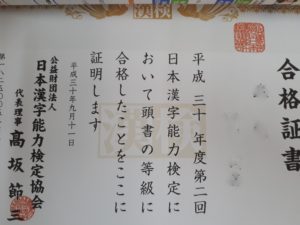 漢検
合格証書
平成三十年度第二回
日本漢字能力検定に
おいて頭書の等級に
合格したことをここに
証明します
平成三十年九月十一日
公益財団法人
日本漢字能力検定協会
代表理事 高坂節三